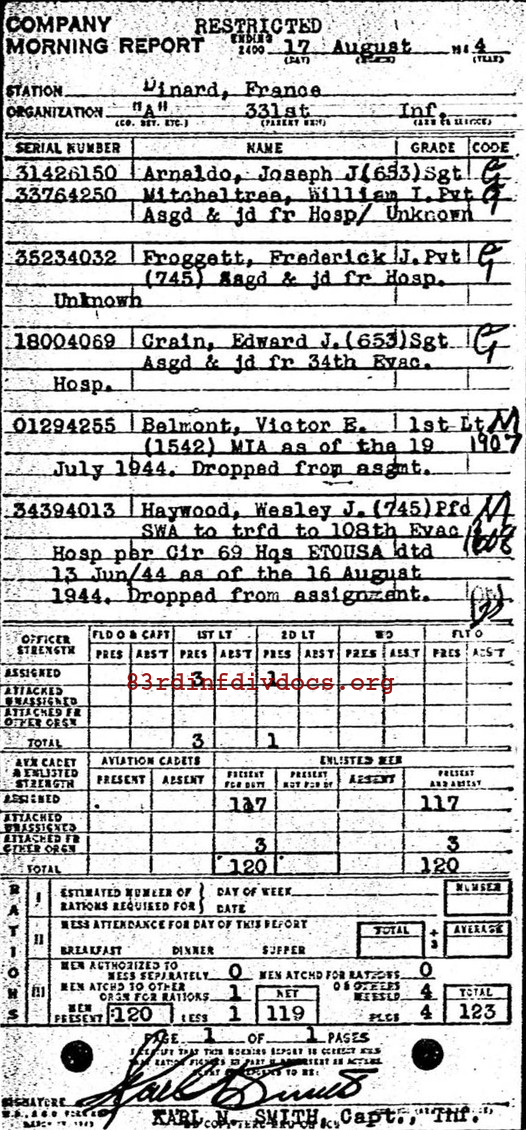 COMPANY RESTRICTED
MORNING REPORT ENDING 2400 17 August 4
(DAY) (YEAR)
STATION Dinard, France
ORGANIZATION "A" 331st Inf.
(CO. DET. ETC.) (PARENT UNIT) (ARM OR SERVICE)
SERIAL NUMBER NAME GRADE CODE
31426150 Arnaldo, Joseph J(653)Sgt G
33764250 Mitcheltree, William I.Pvt G
Asgd & jd fr Hosp/ Unknown
35234032 Froggett, Frederick J.Pvt G
(745) Asgd & jd fr Hosp.
Unknown
18004069 Crain, Edward J.(653)Sgt G
Asgd & jd fr 34th Evac.
Hosp.
01294255 Belmont, Victor E. 1st Lt M
(1542) MIA as of the 19 1907
July 1944. Dropped from asgmt.
34394013 Haywood, Wesley J.(745)Pfd M
SWA to trfd to 108th Evac
Hosp per Cir 69 Hqs ETOUSA dtd
13 Jun/44 as of the 16 August
1944. Dropped from assignment.
OFFICER STRENGTH FLD O & CAPT 1ST LT 2D LT WO FLT O
PRES ABS'T PRES ABS'T PRES ABS'T PRES ABS'T PRES ABS'T
ASSIGNED 3 1
83rdinfdivdocs.org
ATTACHED UNASSIGNED
ATTACHED FR OTHER ORGN
TOTAL 3 1
AVN CADET & ENLISTED STRENGTH AVIATION CADETS ENLISTED MEN
PRESENT ABSENT PRESENT FOR DUTY PRESENT NOT FOR DY ABSENT PRESENT AND ABSENT
ASSIGNED 117 117
ATTACHED UNASSIGNED
ATTACHED FR OTHER ORGN 3 3
TOTAL 120 120
RATIONS
I ESTIMATED NUMBER OF RATIONS REQUIRED FOR DAY OF WEEK DATE NUMBER
II MESS ATTENDANCE FOR DAY OF THIS REPORT TOTAL ÷ 3 AVERAGE
BREAKFAST DINNER SUPPER
III MEN AUTHORIZED TO MESS SEPARATELY 0 MEN ATCHD FOR RATIONS 0
MEN ATCHD TO OTHER ORGN FOR RATIONS 1 NET O & OTHERS MESSED 4 TOTAL
MEN PRESENT 120 LESS 1 119 PLUS 4 123
PAGE 1 OF 1 PAGES
I CERTIFY THAT THIS MORNING REPORT IS CORRECT
SIGNATURE Karl N Smith
KARL N. SMITH, Capt., Inf.